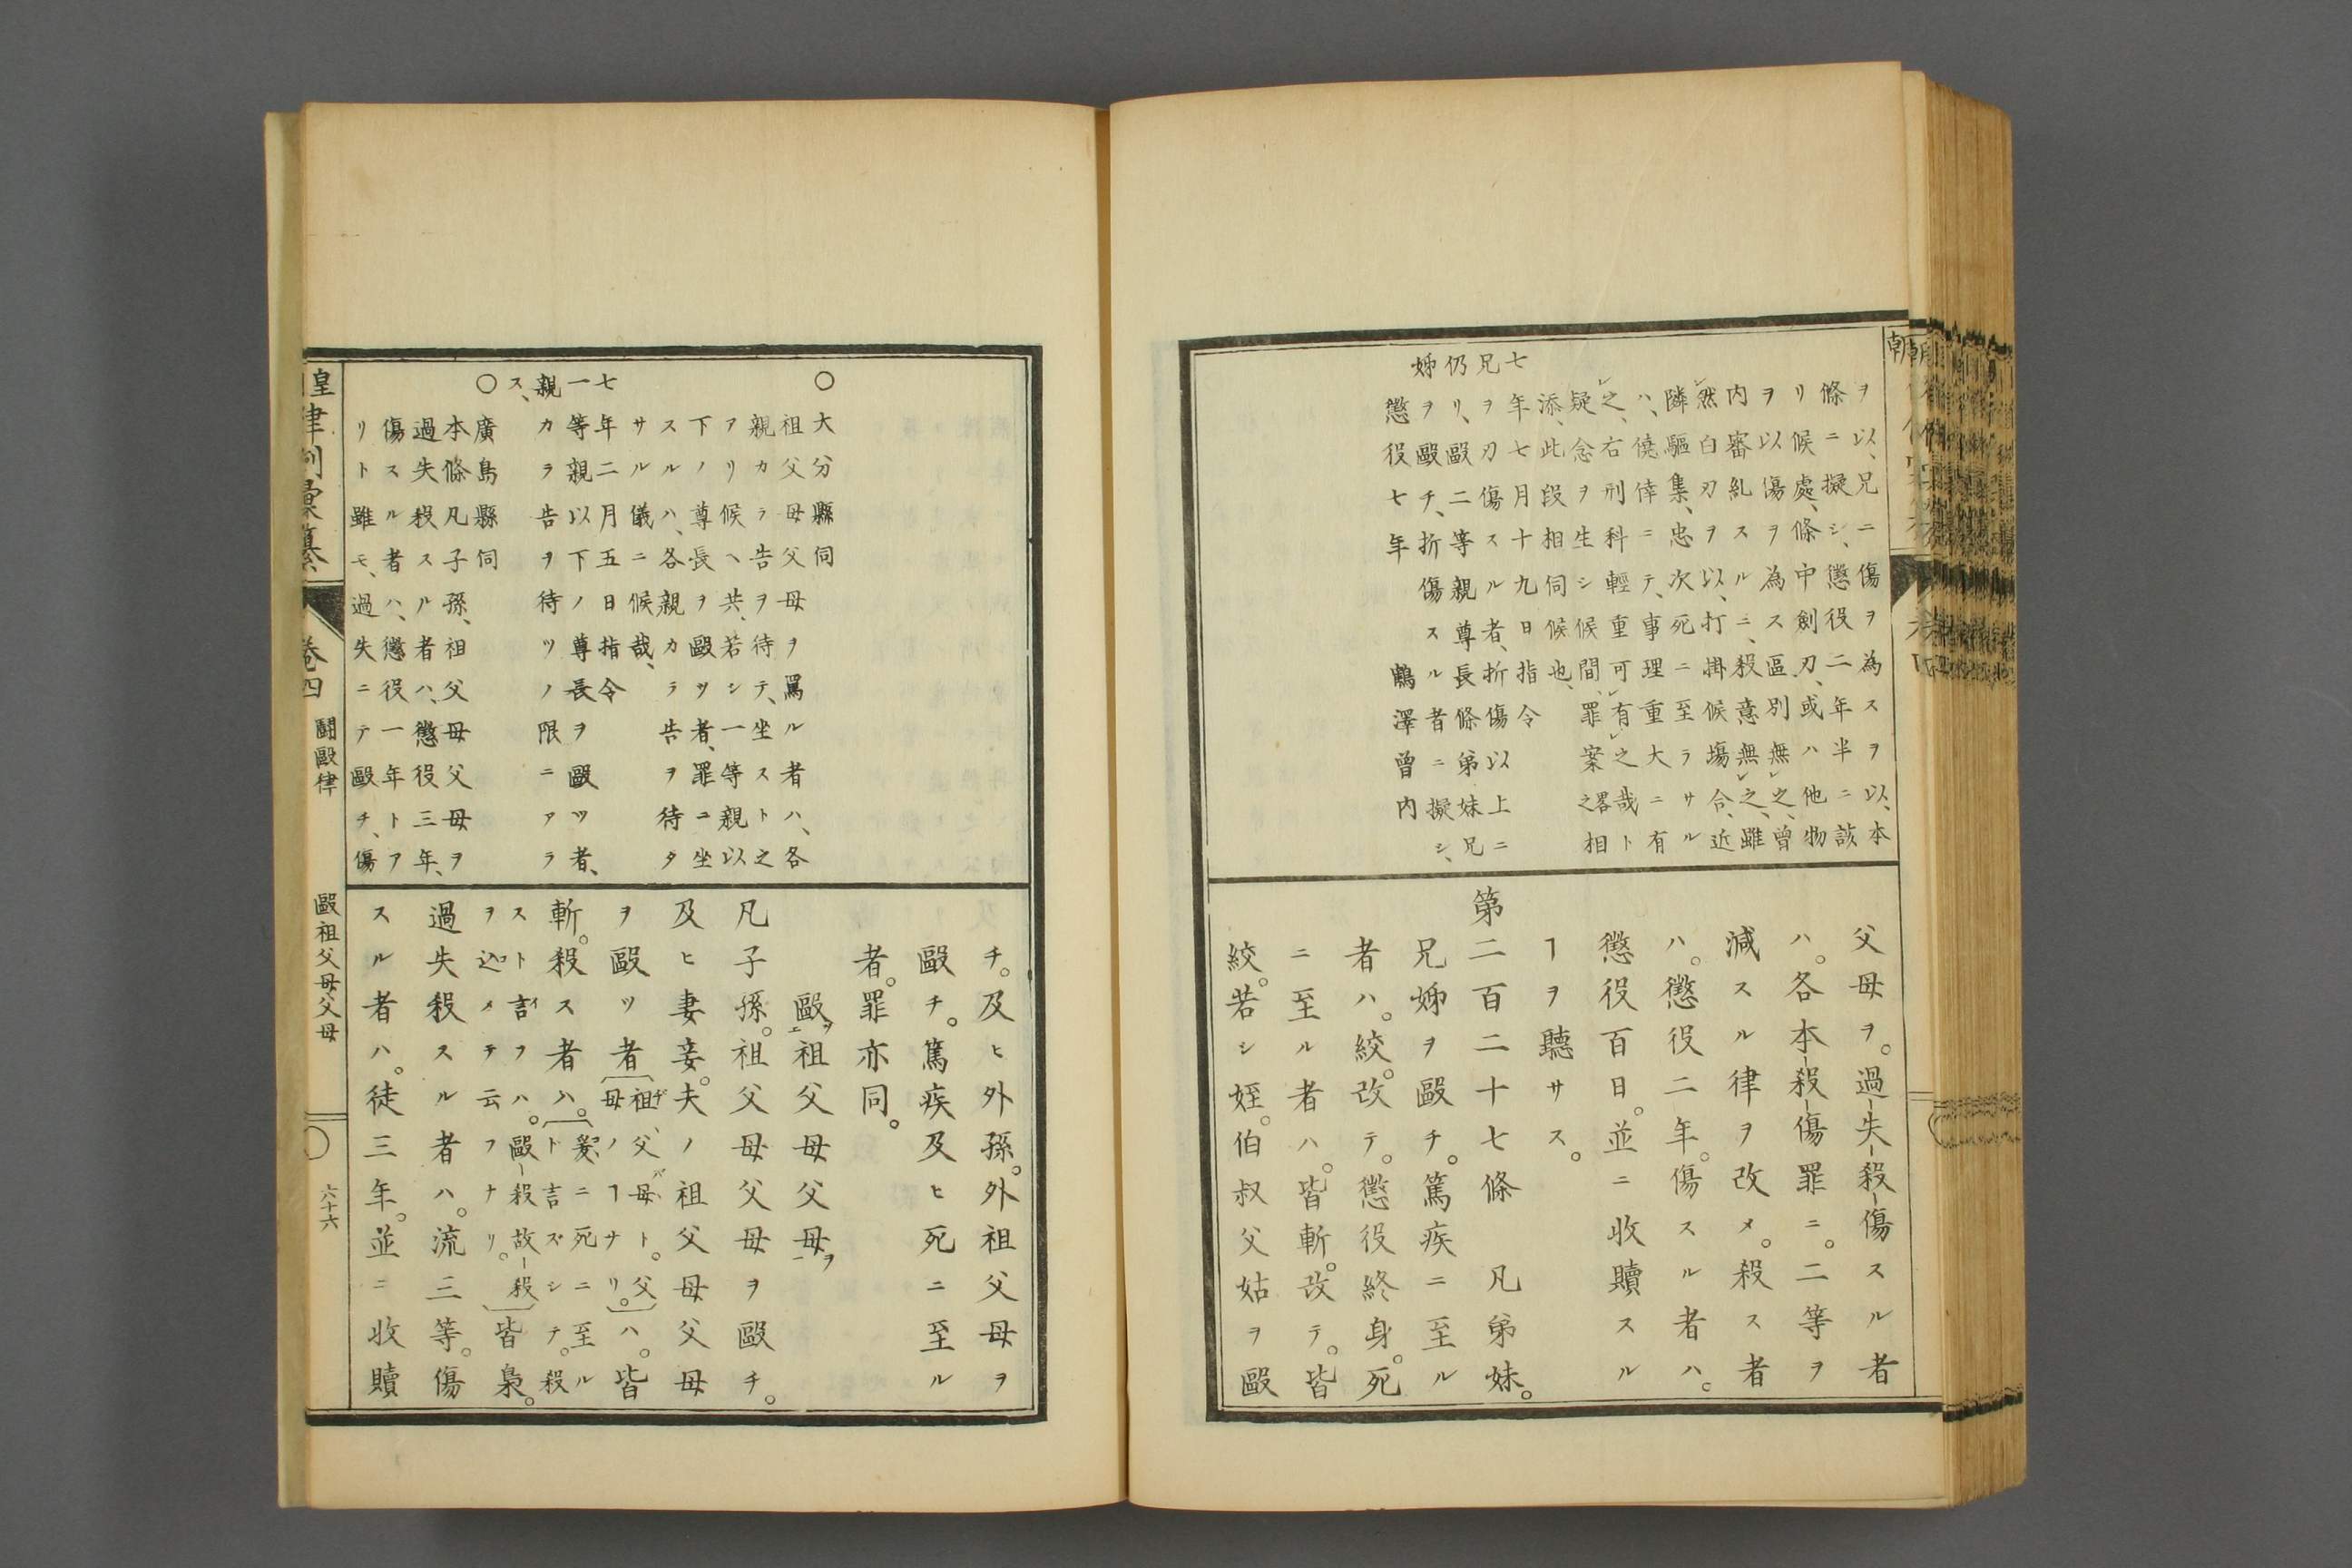 ヲ以、兄ニ傷ヲ為スヲ以、本
條ニ擬シ、懲役二年半ニ該
リ候處、條中創刃、或ハ他物
ヲ以傷ヲ為ス區別無之、曽
内審糺スルニ、殺意無之、雖
然白刃ヲ以、打掛候塲合、近
隣驅集、忠次死ニ至ラサル
ハ、僥倖ニテ、事理重大ニ有
之、右刑科輕重可有之哉ト
疑念ヲ生シ候間、罪案之畧相
添、此段相伺候也、
七年七月十九日指令
兄ヲ刃傷スル者、折傷以上ニ
仍リ、毆二等親尊長條弟妹兄
姊ヲ毆チ、折傷スル者ニ擬シ、
懲役七年　鵜澤曽内
父母ヲ。過失殺傷スル者
ハ。各本殺傷罪ニ。二等ヲ
減スル律ヲ改メ。殺ス者
ハ。懲役二年。傷スル者ハ。
懲役百日。並ニ收贖スル
ヿヲ聽サス。
第二百二十七條　凡弟妹。
兄姊ヲ毆チ。篤疾ニ至ル
者ハ。絞。改テ。懲役終身。死
ニ至ル者ハ。皆斬。改テ。皆
絞。若シ姪。伯叔父姑ヲ毆
○大分縣伺
祖父母父母ヲ罵ル者ハ、各
親カラ告ヲ待テ、坐スト之
アリ候ヘ共、若シ一等親以
下ノ尊長ヲ毆ツ者、罪ニ坐
スルハ、各親カラ告ヲ待タ
サル儀ニ候哉、
七年二月五日指令
一等親以下ノ尊長ヲ毆ツ者、
親カラ告ヲ待ツノ限ニアラ
ス、
○廣島縣伺
本條凡子孫、祖父母父母ヲ
過失殺スル者ハ、懲役三年、
傷スル者ハ、懲役一年トア
リト雖モ、過失ニテ毆チ、傷
チ。及ヒ外孫。外祖父母ヲ
毆チ。篤疾及ヒ死ニ至ル
者。罪亦同。
毆祖父母父母
凡子孫。祖父母父母ヲ毆チ。
及ヒ妻妾。夫ノ祖父母父母
ヲ毆ツ者祖父母ト。父母ノヿナリ。ハ。皆
斬。殺ス者ハ。爰ニ死ニ至ルト言ズシテ。殺
スト言フハ。毆殺故殺
ヲ込メテ云フナリ。皆梟。
過失殺スル者ハ。流三等。傷
スル者ハ。徒三年。並ニ收贖
皇律例彙纂
卷四
鬪毆律
毆祖父母父母
六十六